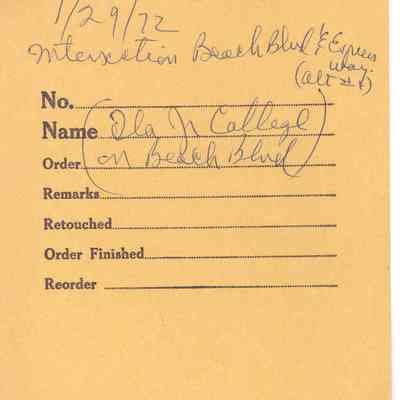 1/29/72
Intersection Beach Blvd & Express
way.
(alt # 1)
No.
Name (Fla Jr College
Order on Beach Blvd)
Remarks
Retouched
Order Finished
Reorder